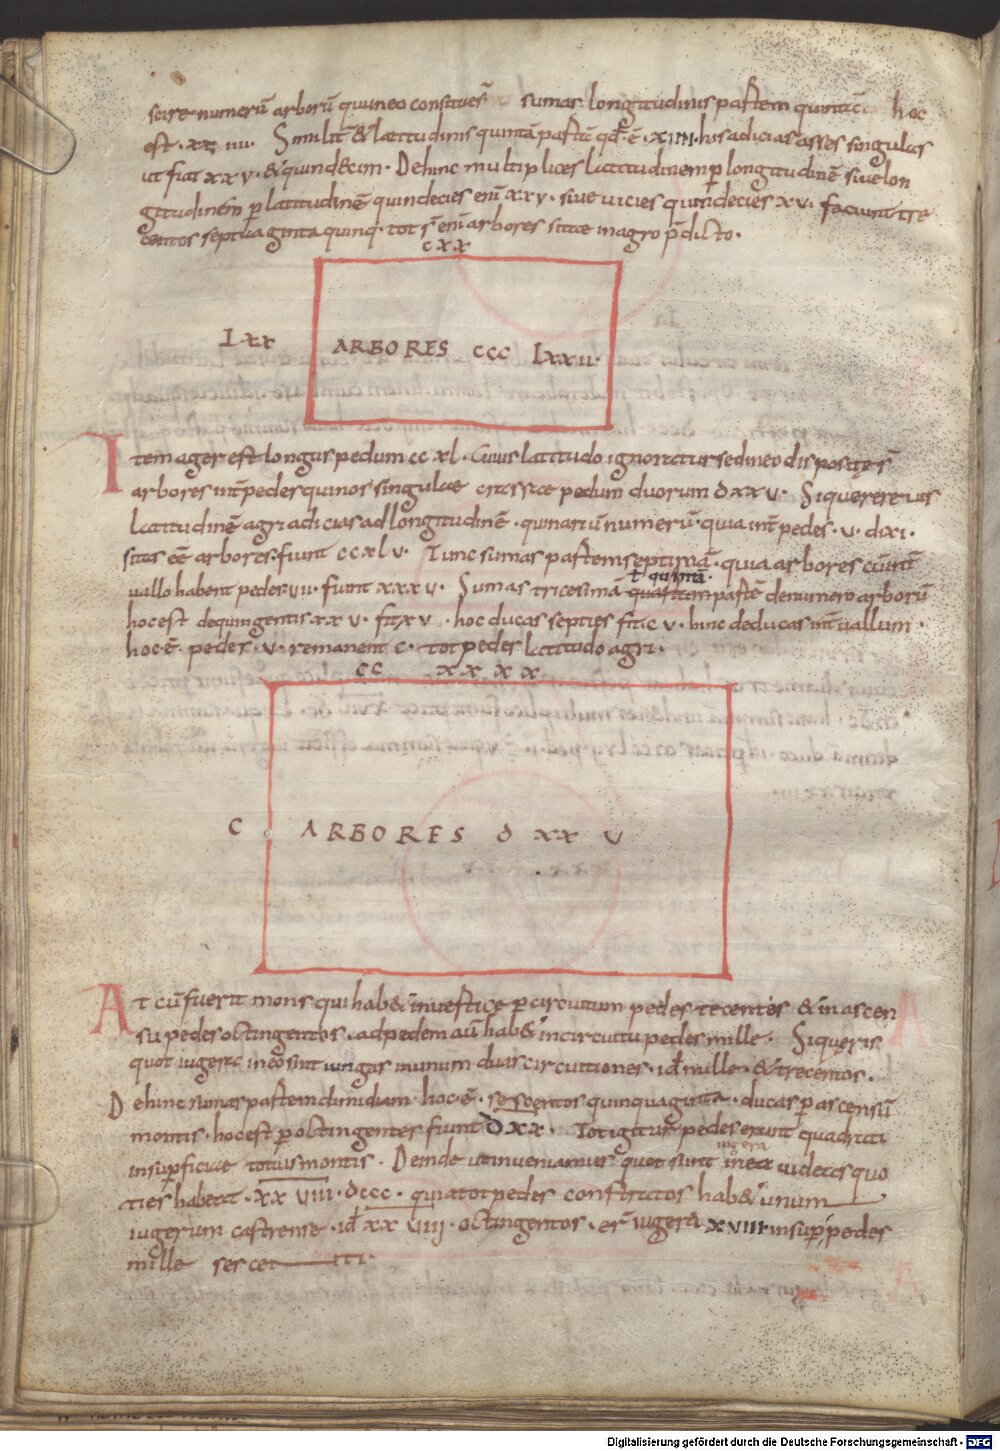 scire numerũ arborũ qui in eo consitae sr̃ sumas longitudinis partem quintã. hoc
est · xx iiii · Similit̃ & latitudinis quintã partẽ qđ ẽ · xiiii · his adicias asses singulas
ut fiat xxv · & quindecim · Dehinc multiplices latitudinem p longitudinẽ sive lon
gitudinem p latitudinẽ quindecies enĩ xxv · sive vicies quindecies xv · faciunt tre
centos septuaginta quinq · tot s̃ enĩ arbores sitae in agro p̃dicto ·
cxx
lxx ARBORES ccc lxxii ·
Item ager est longus pedum cc xl · Cuius latitudo ignoratur sed in eo dispositę s̃
arbores int̃ pedes quinos singulae crassae pedum duorum dxxv · Si querere vis
latitudinẽ agri adicias ad longitudinẽ · quinariũ numerũ · quia int̃ pedes · v · dixi ·
sitas eẽ arbores · fiunt ccxlv · Tunc sumas partem septimã · quia arbores cũ int̃
vallo habent pedes vii · fiunt xxxv · Sumas tricesimã quartam partẽ de numero arborũ
ł quintã ·
hoc est de quingentis xxv · fit xv · hoc ducas septies fit cv · hinc deducas int̃vallum ·
hoc ẽ · pedes · v · remanent c · tot pedes latitudo agri ·
cc xxxx
c ARBORES d xx v
At cũ fuerit mons qui hab& in vestice p circuitum pedes trecentos & in ascen
su pedes octingentos · ad pedem aũ hab& in circuitu pedes mille · Si quęris
quot iugera in eo sint iungas in unum duas circuitiones · iđ mille · & trecentos ·
Dehinc sumas partem dimidiam · hoc ẽ · sescentos quinquaginta · ducas p ascensũ
montis · hoc est p octingentes fiunt dxx · Tot igitur pedes erunt quadrati
in supficiae totius montis · Deinde ut inveniamus quot sunt in ea videas quo
iugera
ties habeat · xx viii · dccc · quia tot pedes constratos hab& unum
iugerum castrense · iđ xx viiii · octingentos · er̃ iugera xviii · insup pedes
mille sescenti ·
Digitalisierung gefördert durch die Deutsche Forschungsgemeinschaft - DFG